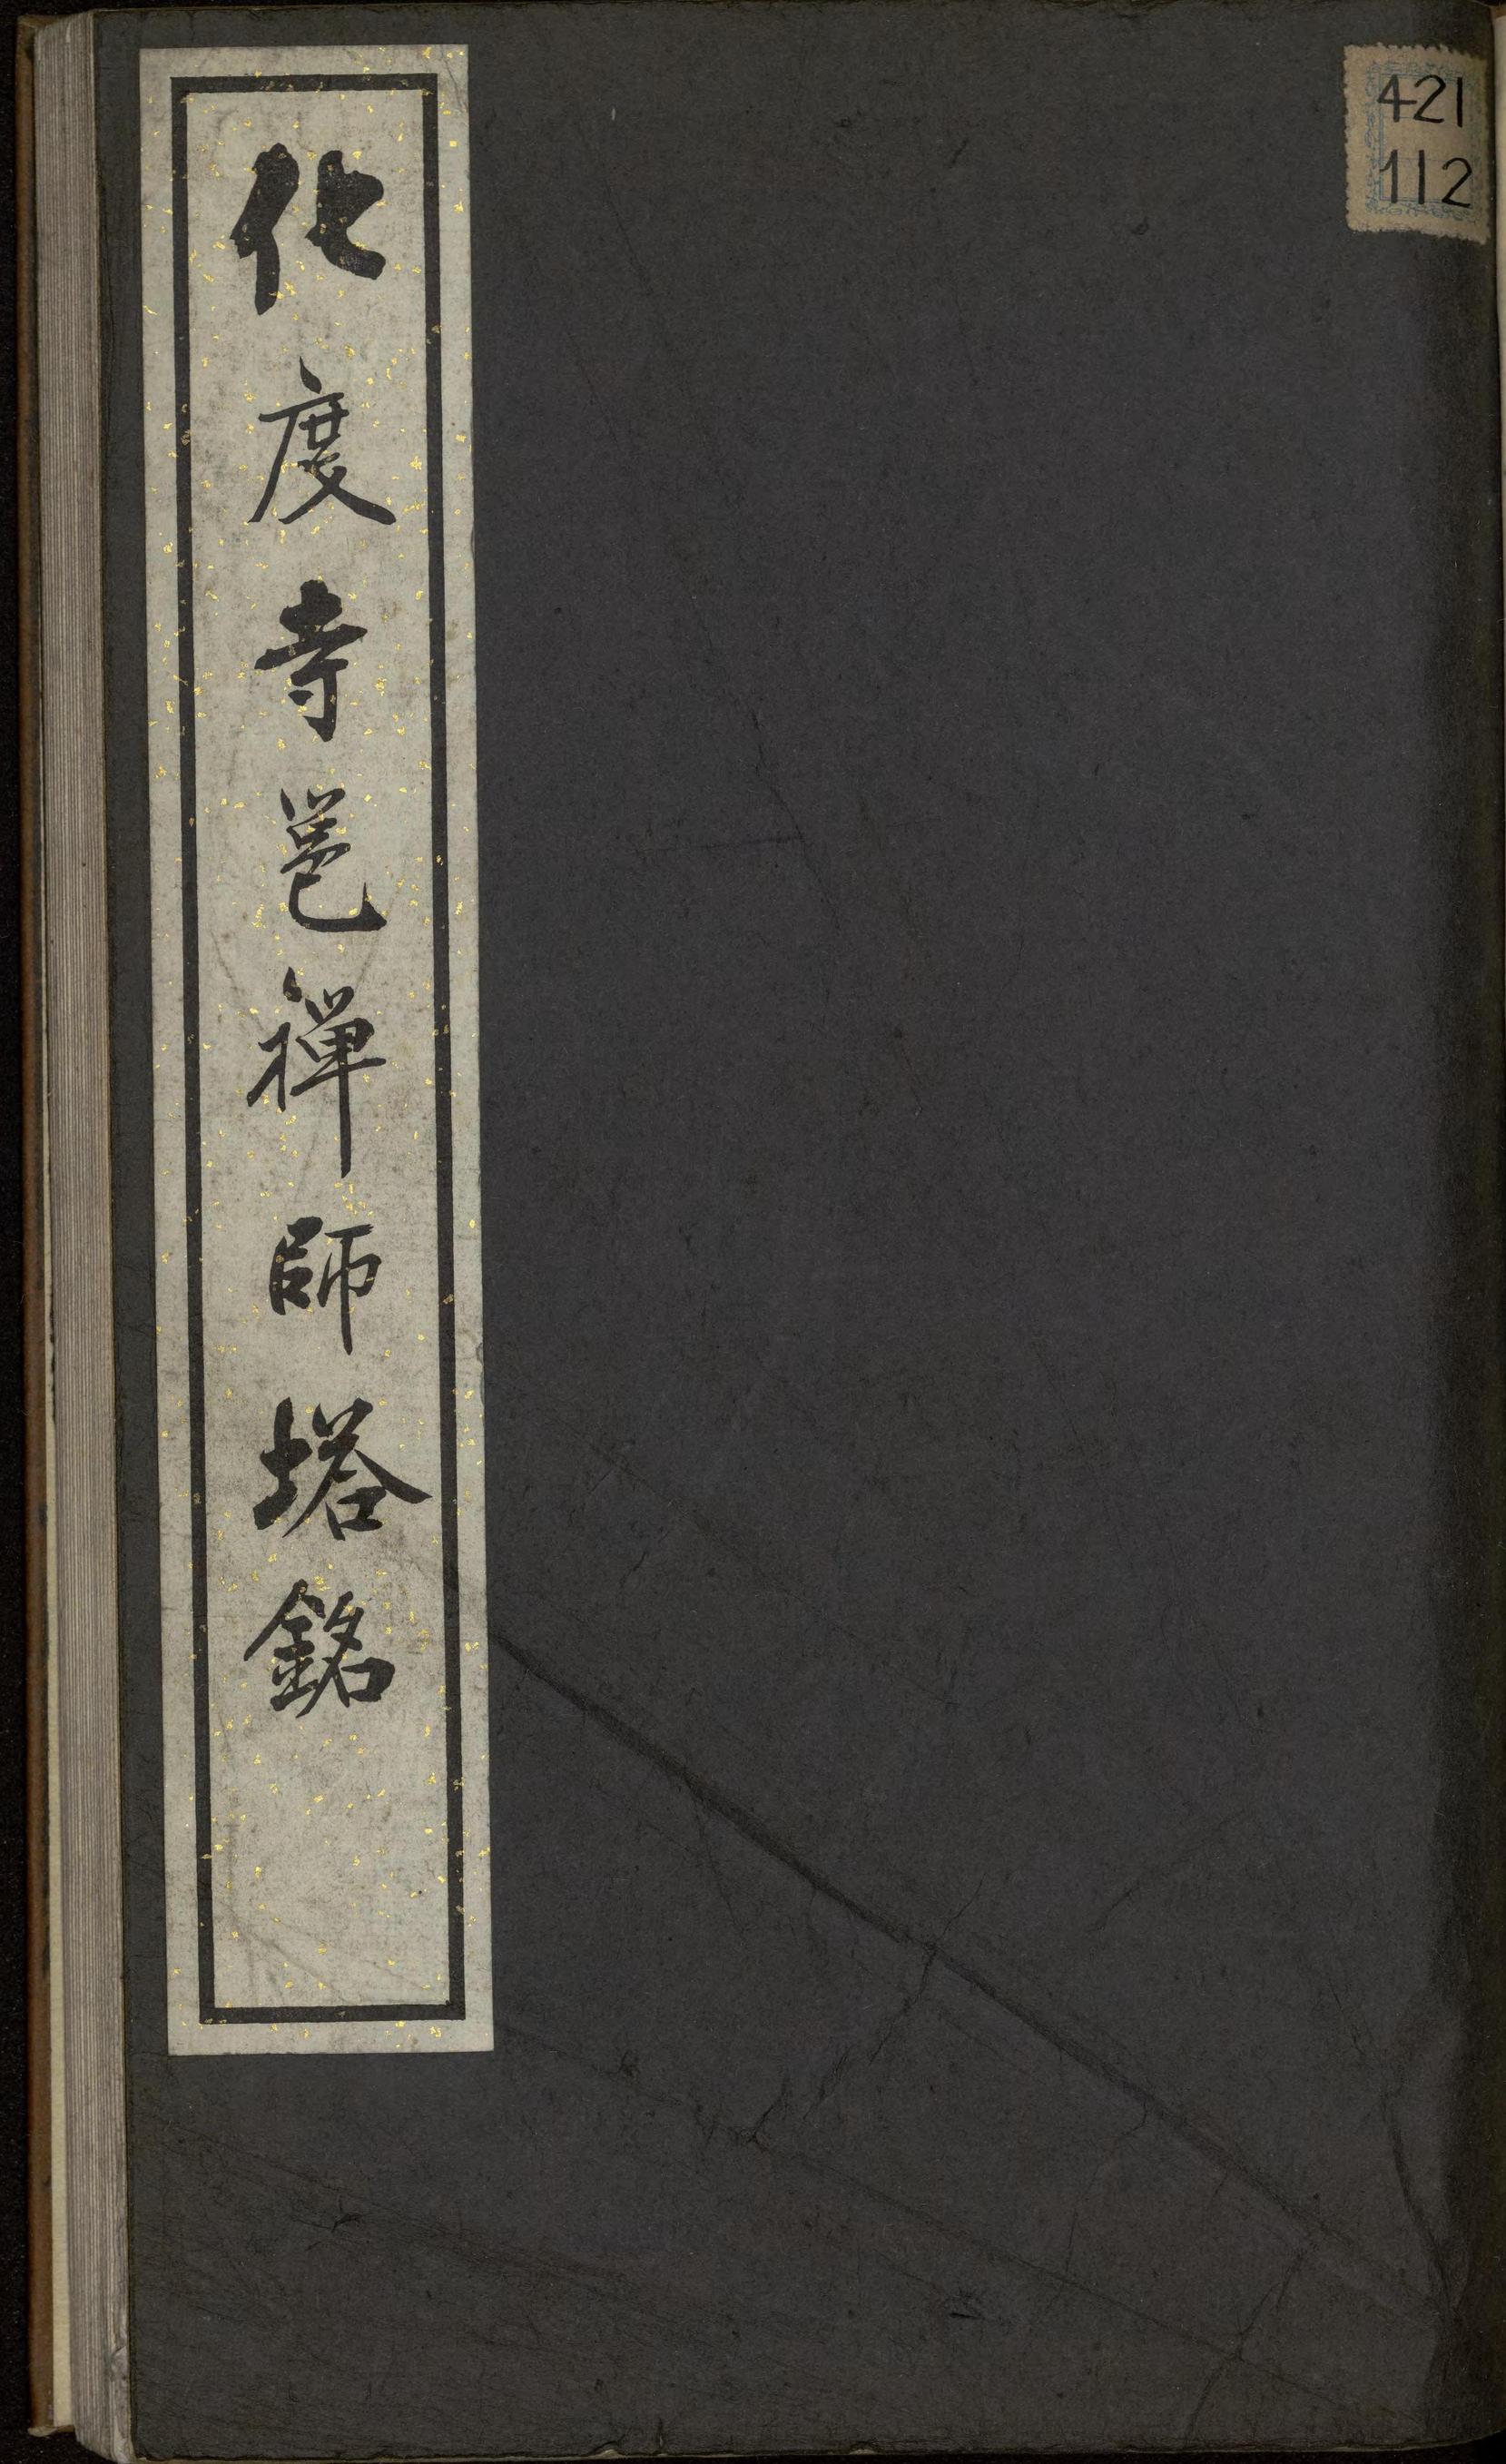 化度寺邕禪師塔銘
421
112